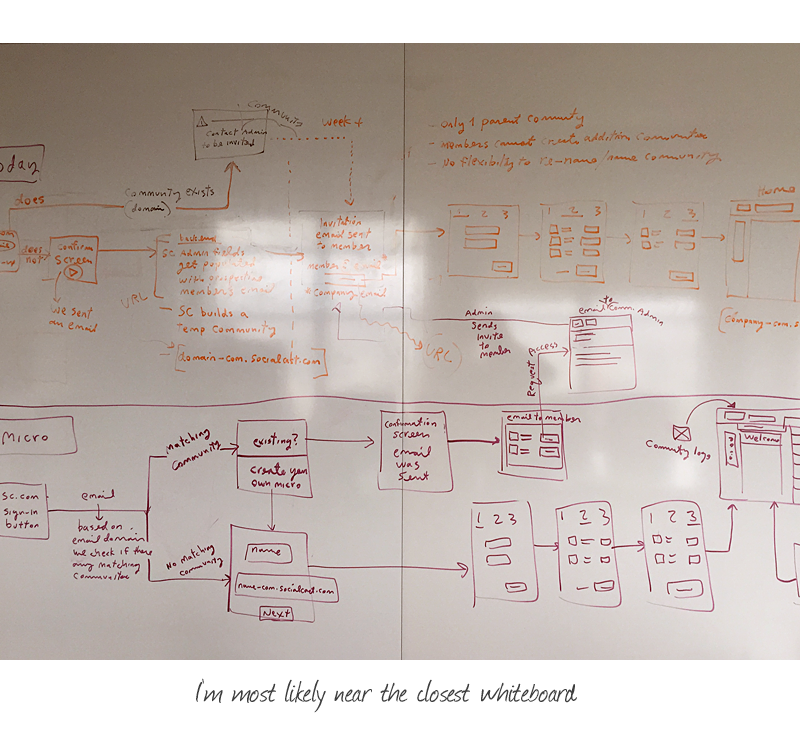 Community
Contact Admin
to be invited
week +
- Only 1 parent Community
- Members cannot create addition Communities
- No flexibility to re-name/name Community
oday
does
Community exists
(domain)
does
not
Confirm
screen
we sent
an email
URL
SC Admin fields
get populated
with
members email
- SC builds a
Temp Community
[domain-com.socialcast.com]
Invitation
email sent
to member
member's email
Company email
URL)
1 2 3
1 2 3
1 2 3
Home
[Company-com.s
Admin
Sends
Invite
to
member
to
email Comm. Admin
Request Access
Micro
SC.com
sign-in
button
email
based on
email domain
we check if there
any matching
Communities
Matching
Community
No matching
Community
existing?
create your
own micro
name
name-com.socialcast.com
Next
Confirmation
screen
email
was
sent
email to member
1 2 3
1 2 3
1 2 3
Community logo
Welcome
I'm most likely near the closest whiteboard